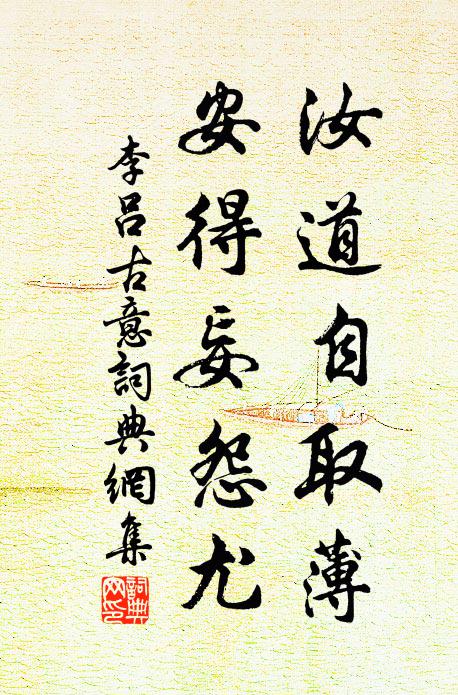 汝道自取薄
安得妄怨尤
李呂古意詞典網集
詞典網印